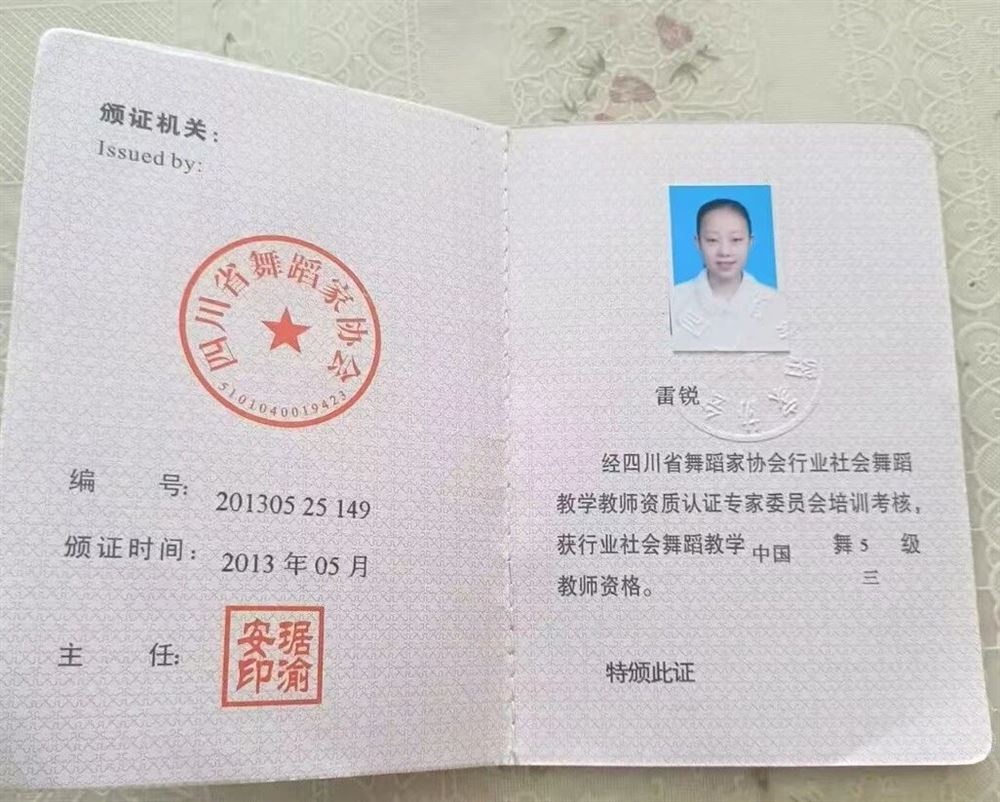 颁证机关：
Issued by:
四川省舞蹈家协会
5101040019423
编 号: 201305 25 149
颁证时间： 2013 年 05 月
主 任:
安琚
印渝
雷锐
经四川省舞蹈家协会行业社会舞蹈
教学教师资质认证专家委员会培训考核，
获行业社会舞蹈教学 中国 舞 5 级
三
教师资格。
特颁此证